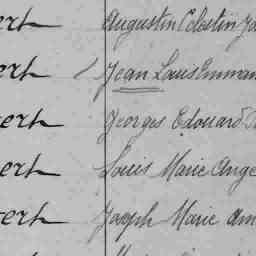 ert Augustin Celestin Jo
ert Jean Louis Emman
ert Georges Edouard
ert Louis Marie Ange
ert Joseph Marie Am